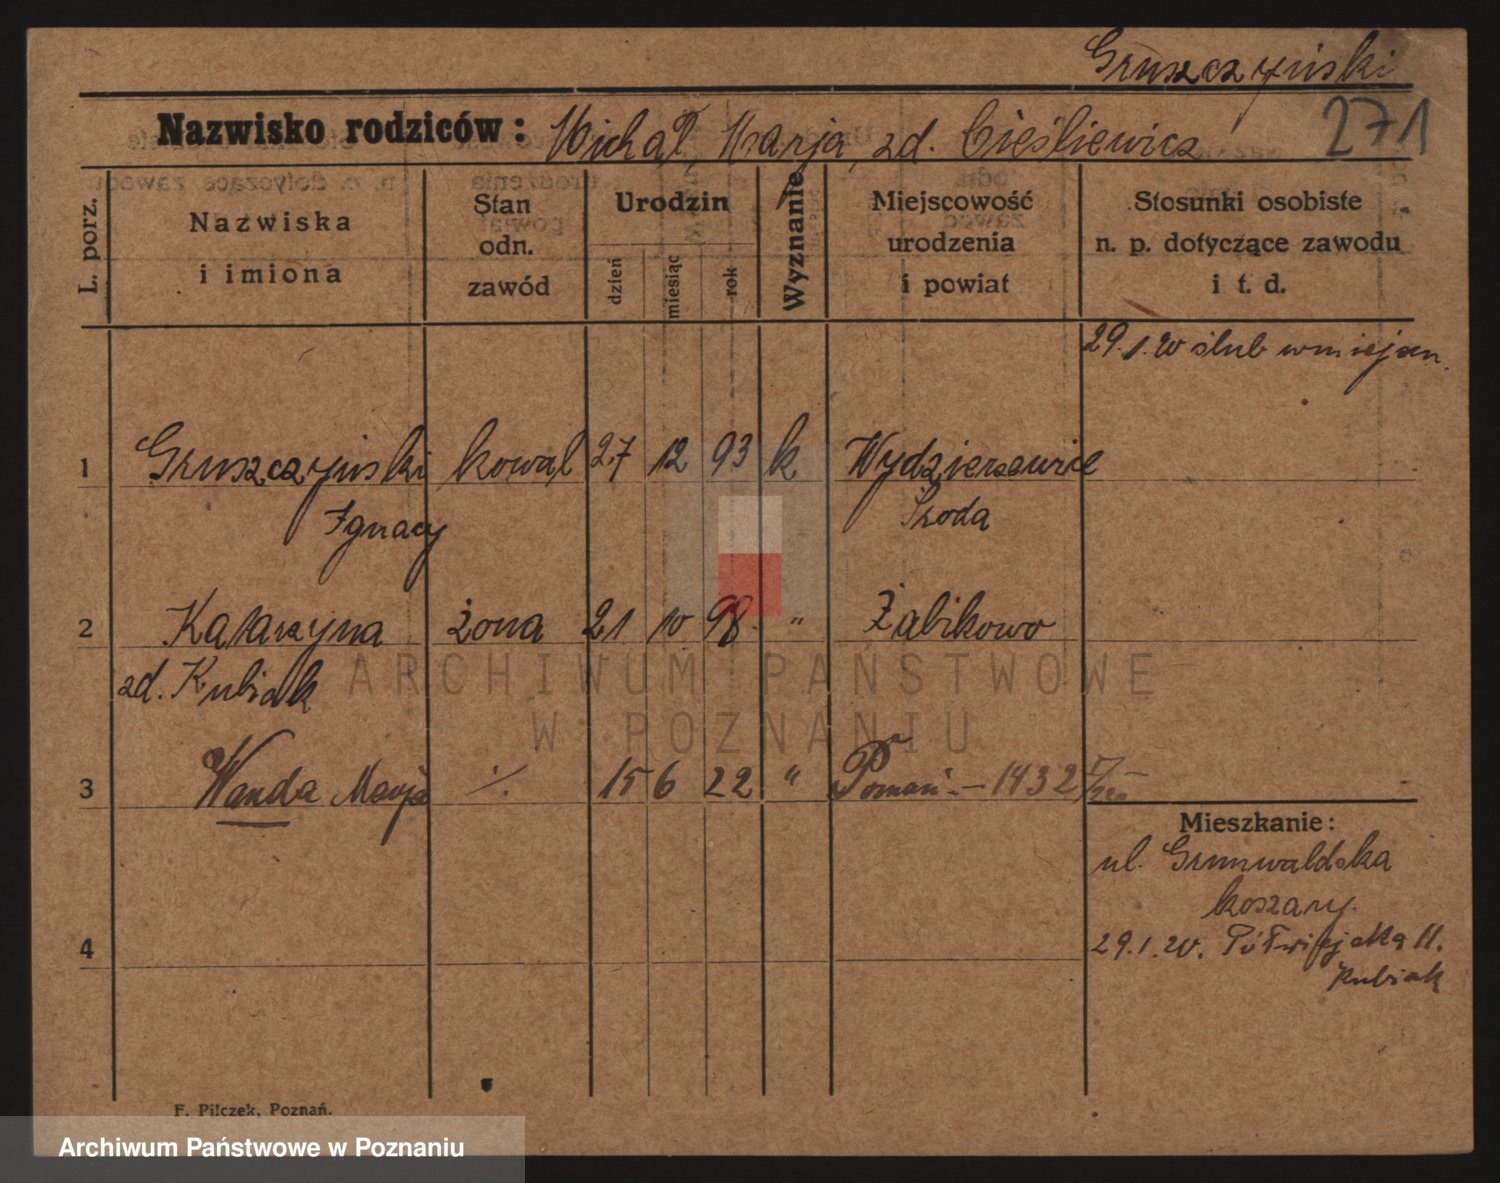 Gruszczyński
271
Nazwisko rodziców: Michał, Marja zd. Cieśliewicz
L. porz.
Nazwiska
i imiona
Stan
odn.
zawód
Urodzin
dzień
miesiąc
rok
Wyznanie
Miejscowość
urodzenia
i powiat
Stosunki osobiste
n. p. dotyczące zawodu
i t. d.
29.1.20 ślub w miejscu.
1 Gruszczyński kowal 27 12 93 k Wydzierzewice
Ignacy Środa
2 Katarzyna żona 21 10 98 " Żabikowo
zd. Kubiak
3 Wanda Marja ·/. 15 6 22 " Poznań - 1432
Mieszkanie:
ul. Grunwaldska
koszary.
4
29.1.20. Półwiejska 11.
Kubiak
F. Pilczek, Poznań.
ARCHIWUM PAŃSTWOWE
W POZNANIU
Archiwum Państwowe w Poznaniu